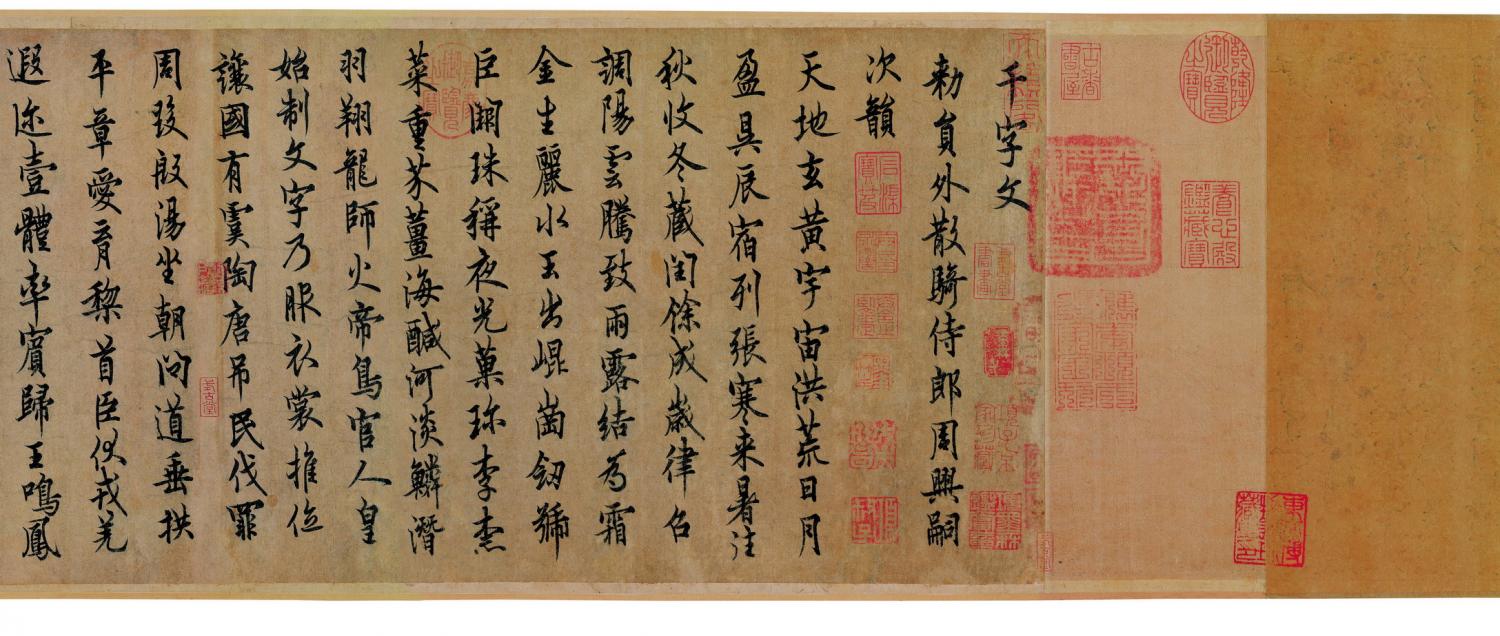 乾隆御覽之寶
養心殿鑑藏寶
千字文
勅員外散騎侍郎周興嗣
次韻
天地玄黃宇宙洪荒日月
盈昃辰宿列張寒来暑往
秋收冬藏閏餘成歲律召
調陽雲騰致雨露結為霜
金生麗水玉出崐崗劒號
巨闕珠稱夜光菓珎李柰
菜重芥薑海醎河淡鱗潛
羽翔龍師火帝鳥官人皇
始制文字乃服衣裳推位
讓國有虞陶唐吊民伐罪
周發殷湯坐朝問道垂拱
平章愛育黎首臣伏戎羌
遐迩壹體率賓歸王鳴鳳